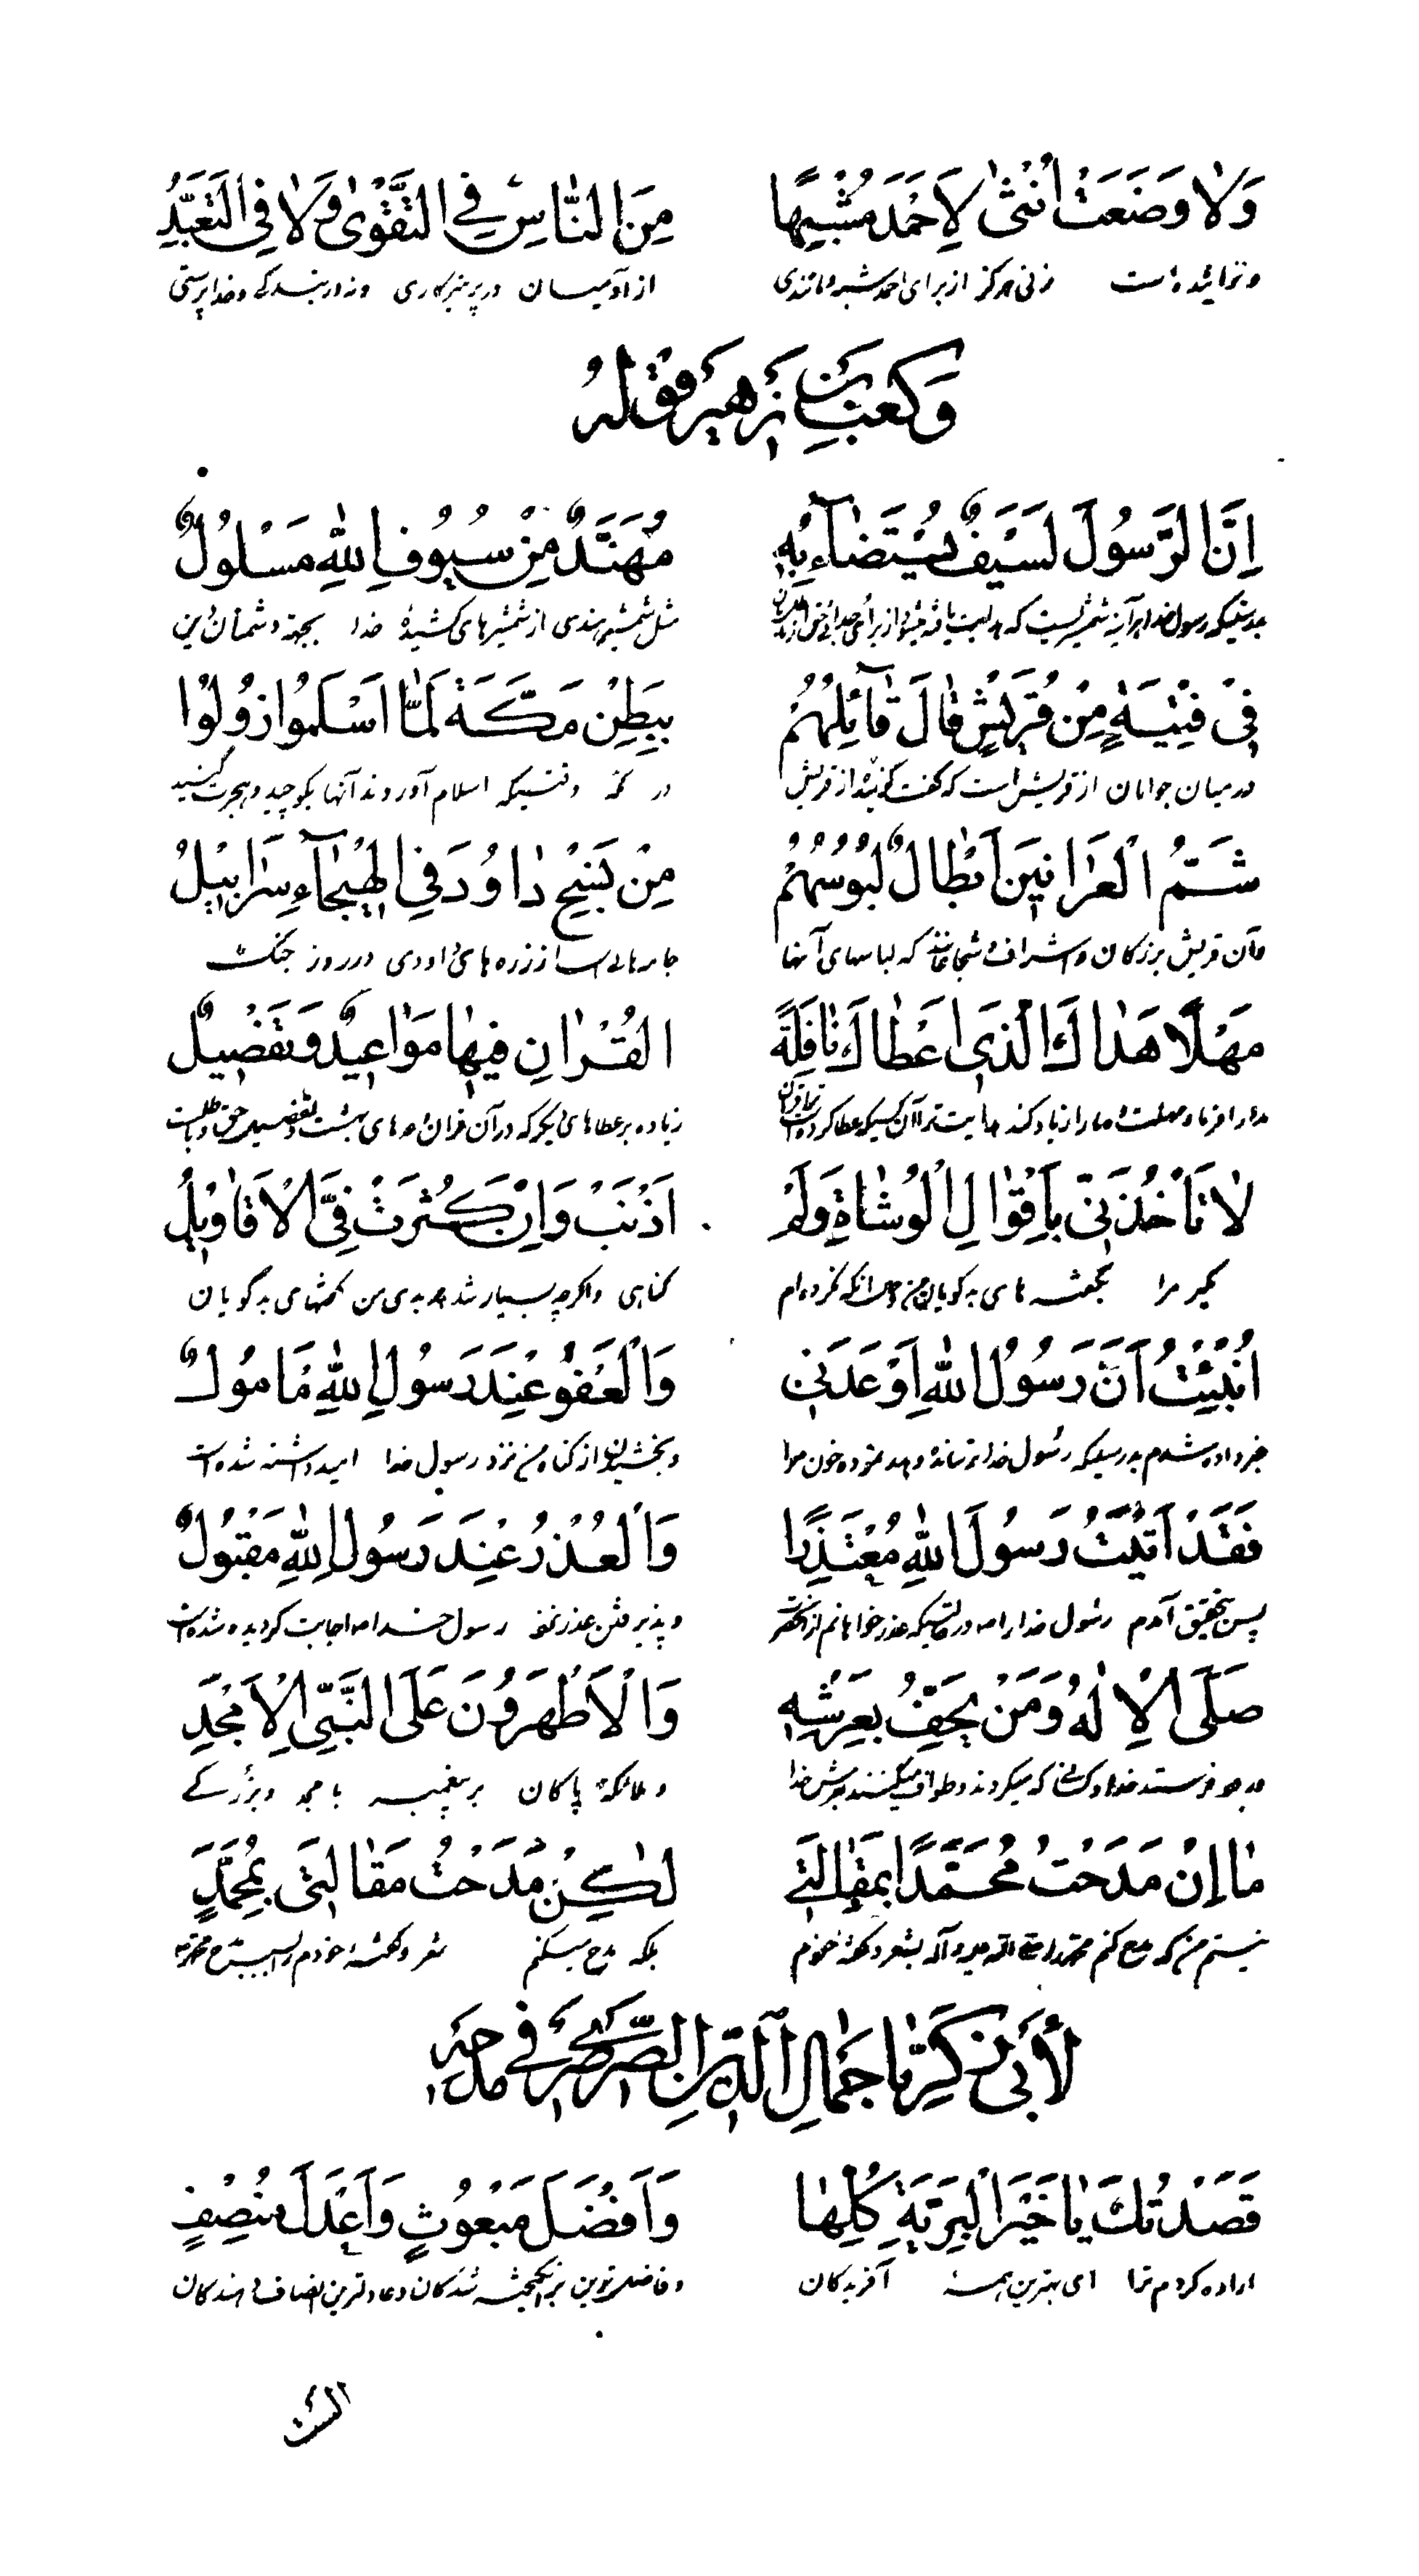 وَلٰا وَضَعَتْ اُنْثىٰ لِاَحْمَدَ مُشْبِهًا مِنَ النّٰاسِ فِي التَّقْوٰى وَلٰا فِي التَّعَبُّدِ
و نزائیده است زنی هرگز از برای احمد شبه و مانندی از آدمیان در پرهیزکاری و نه در بندگی و خداپرستی
وَكَعْبِ بْنِ زُهَيْرٍ قَوْلُهُ
اِنَّ الرَّسُولَ لَسَيْفٌ يُسْتَضٰآءُ بِهٖ مُهَنَّدٌ مِنْ سُيُوفِ اللهِ مَسْلُولٌ
بدرستیکه رسول خدا هرآینه شمشیریست که مثل شمشیر هندی از شمشیرهای کشیدهٔ خدا بجهة دشمنان دین
فِي فِتْيَةٍ مِنْ قُرَيْشٍ قٰالَ قٰآئِلُهُمْ بِبَطْنِ مَكَّةَ لَمّٰا اَسْلَمُوا زُولُوا
در میان جوانان از قریش است که گفت گوینده از قریش در مکه وقتیکه اسلام آوردند آنها بکوچید و هجرت کنید
شُمُّ الْعَرٰانِينَ اَبْطٰالٌ لَبُوسُهُمْ مِنْ نَسْجِ دٰاوُدَ فِي الْهَيْجٰآءِ سَرٰابِيلُ
و آن قریش بزرگان و اشراف و شجاعانند که لباسهای آنها جامه هائی است از زره های داودی در روز جنگ
مَهْلًا هَدٰاكَ الَّذِي اَعْطٰاكَ نٰافِلَةَ الْقُرْاٰنِ فِيهٰا مَوٰاعِيدٌ وَتَفْضِيلٌ
لٰا تَأْخُذَنِّي بِاَقْوٰالِ الْوُشٰاةِ وَلَمْ اُذْنِبْ وَاِنْ كَثُرَتْ فِيَّ الْاَقٰاوِيلُ
مگیر مرا بگفته های بدگویان من و حال آنکه نکرده ام گناهی و اگرچه بسیار شد در بدی من گفتهای بدگویان
اُنْبِئْتُ اَنَّ رَسُولَ اللهِ اَوْعَدَنِي وَالْعَفْوُ عِنْدَ رَسُولِ اللهِ مَأْمُولٌ
خبر داده شدم بدرستیکه رسول خدا ترسانده و هدر نموده خون مرا و بخشیدن از گناه من نزد رسول خدا امید داشته شده است
فَقَدْ اَتَيْتُ رَسُولَ اللهِ مُعْتَذِرًا وَالْعُذْرُ عِنْدَ رَسُولِ اللهِ مَقْبُولٌ
پس بتحقیق آمدم رسول خدا را در حالتیکه عذرخواهانم از آنحضرت و پذیرفتن عذر نزد رسول خدا اجابت کردیده شده است
صَلَّى الْاِلٰهُ وَمَنْ يَحُفُّ بِعَرْشِهٖ وَالْاَطْهَرُونَ عَلَى النَّبِيِّ الْاَمْجَدِ
درود فرستد خدا و کسانی که میگردند و طواف میکنند بعرش خدا و ملائکهٔ پاکان بر پیغمبر با مجد و بزرگی
مٰا اِنْ مَدَحْتُ مُحَمَّدًا بِمَقٰالَتِي لٰكِنْ مَدَحْتُ مَقٰالَتِي بِمُحَمَّدٍ
نیستم من که مدح کنم محمد را صلی الله علیه و آله بشعر و گفتهٔ خودم بلکه مدح میکنم شعر و گفتهٔ خودم را بسبب مدح محمد
لِأَبِي زَكَرِيّٰا جَمٰالِ الدِّينِ الصَّرْصَرِيِّ فِي مَدْحِهِ
قَصَدْتُكَ يٰا خَيْرَ الْبَرِيَّةِ كُلِّهٰا وَاَفْضَلَ مَبْعُوثٍ وَاَعْدَلَ مُنْصِفٍ
اراده کردم ترا ای بهترین همهٔ آفریدگان و فاضلترین برانگیخته شدگان و عادلترین انصاف دهندگان
الست